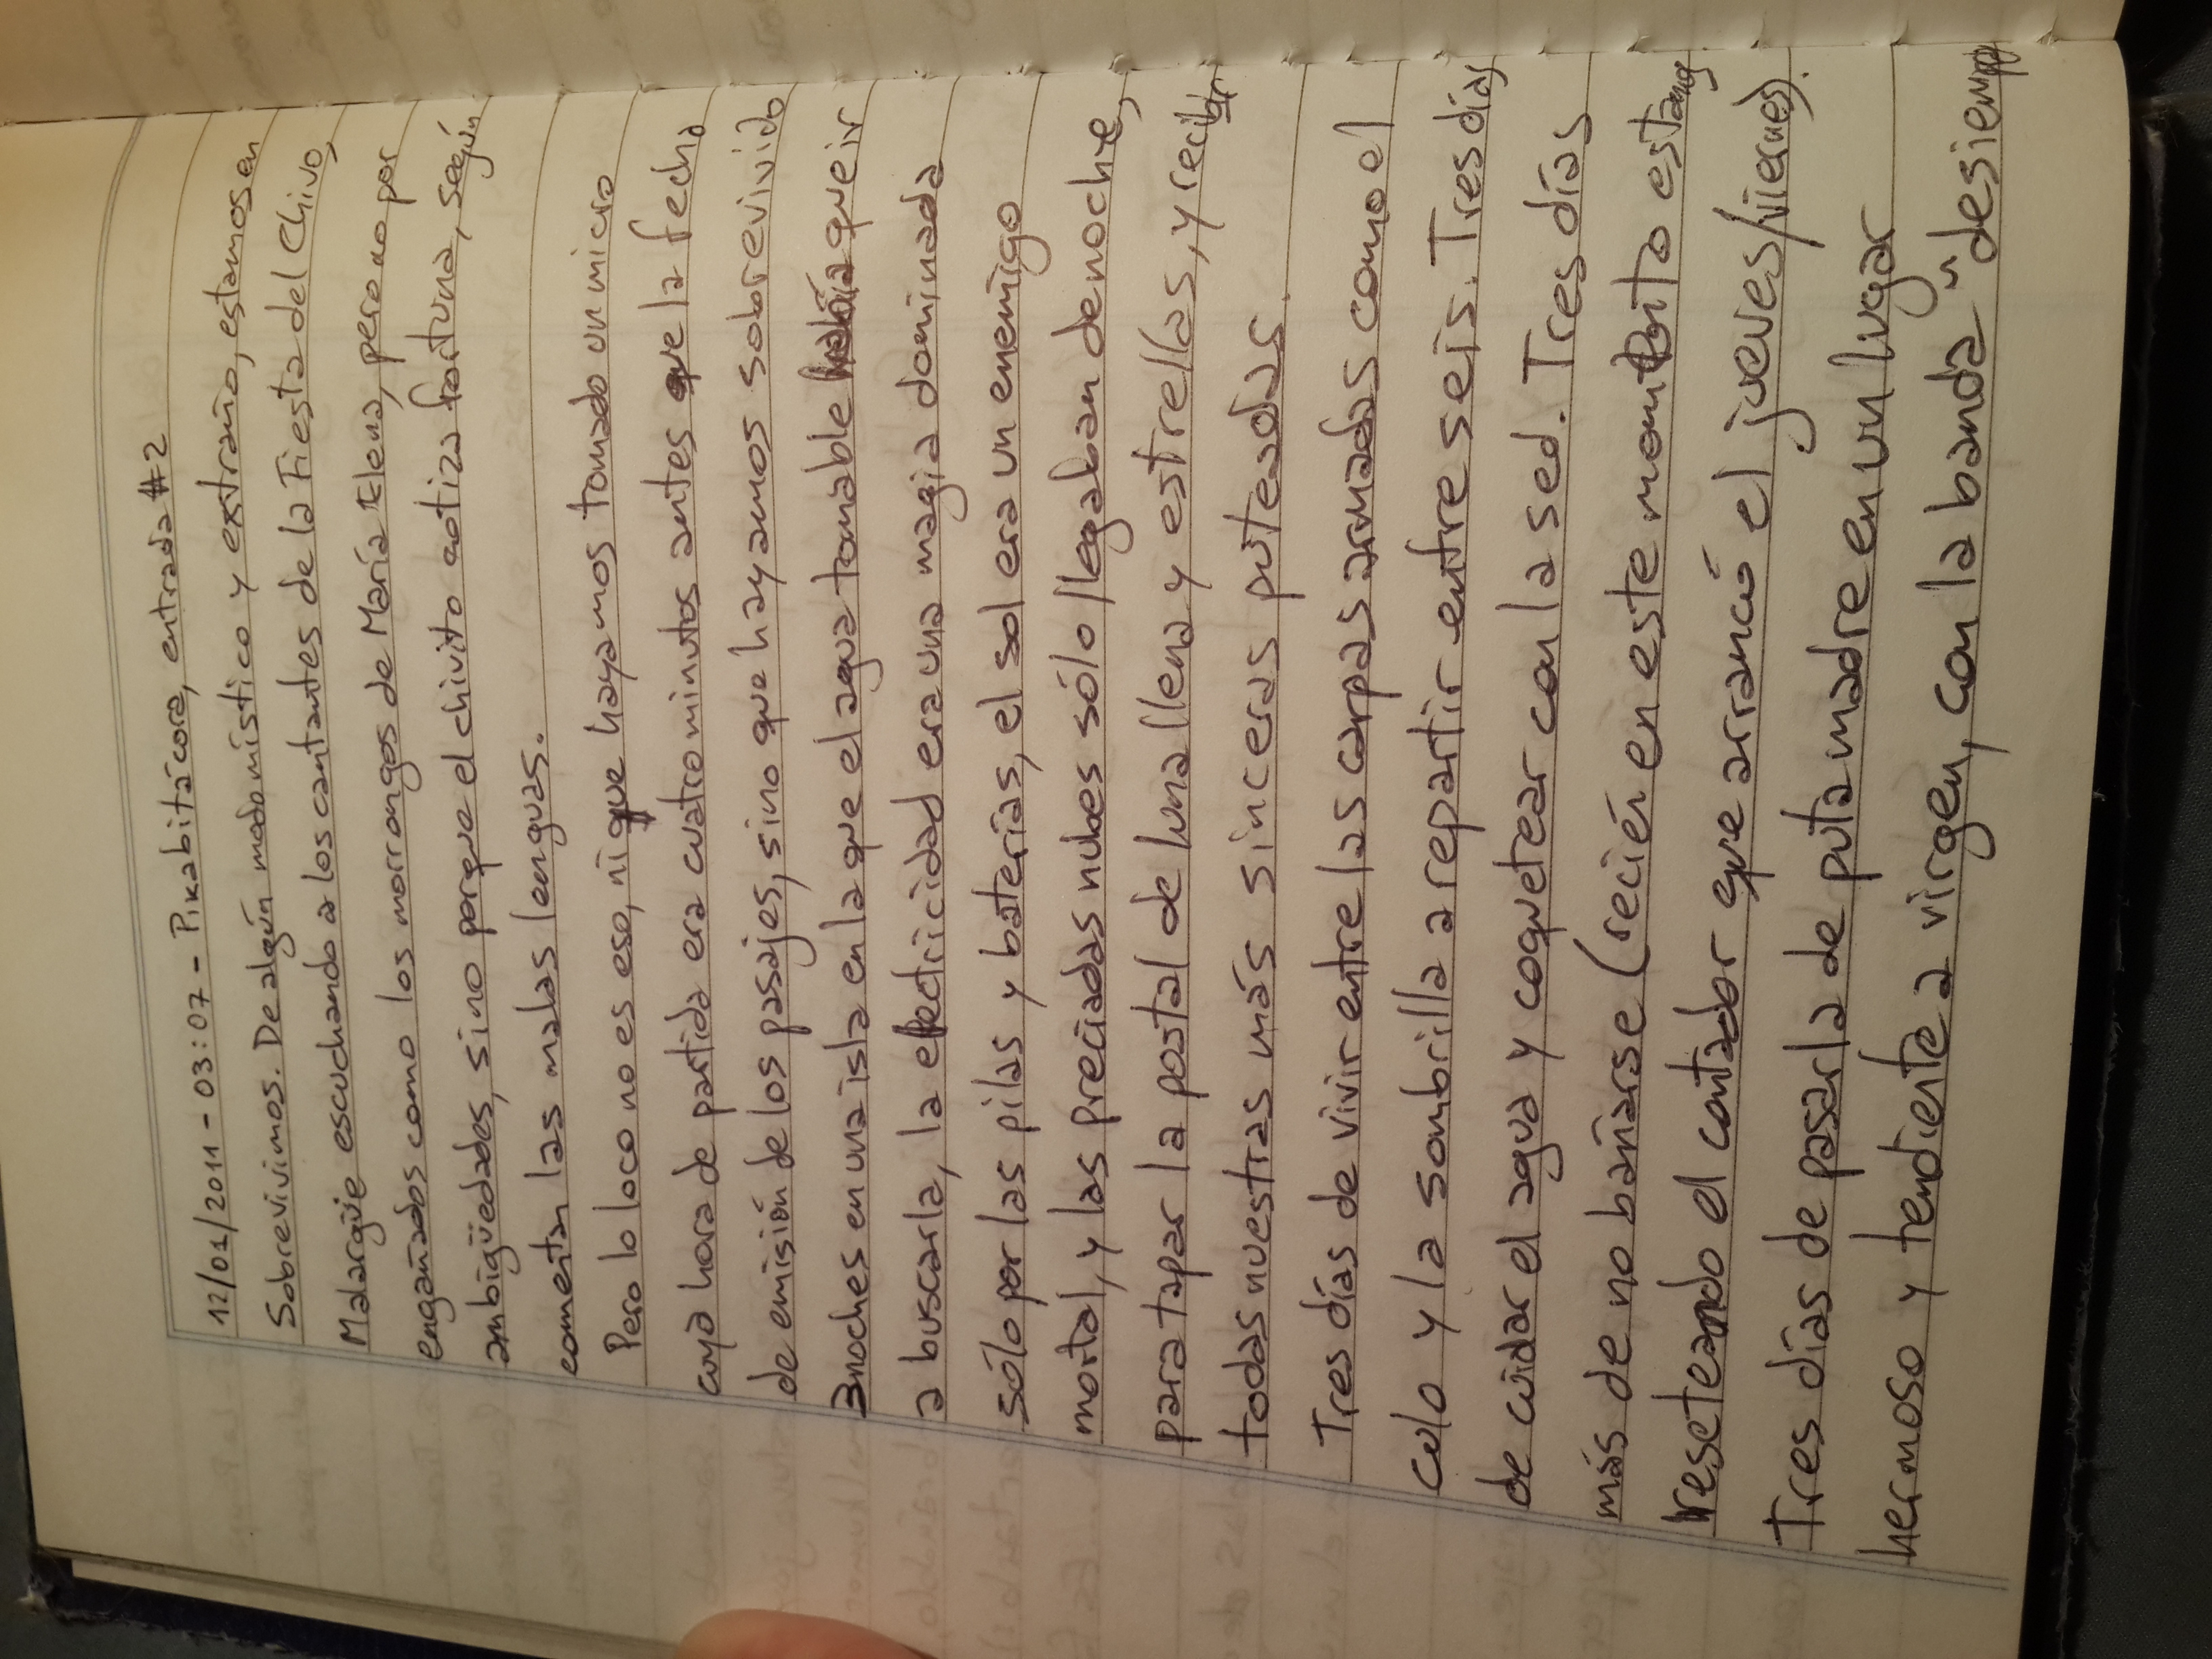 12/01/2011 - 03:07 - Pikabitácora, entrada #2
Sobrevivimos. De algún modo místico y extraño, estamos en
Malargüe escuchando a los cantantes de la Fiesta del Chivo,
engañados como los morrongos de María Elena, pero no por
ambigüedades, sino porque el chivito cotiza fortuna, según
comentan las malas lenguas.
Pero lo loco no es eso, ni que hayamos tomado un micro
cuya hora de partida era cuatro minutos antes que la fecha
de emisión de los pasajes, sino que hayamos sobrevivido
3 noches en una isla en la que el agua tomable había que ir
a buscarla, la electricidad era una magia dominada
sólo por las pilas y baterías, el sol era un enemigo
mortal, y las preciadas nubes sólo llegaban de noche,
para tapar la postal de luna llena y estrellas, y recibir
todas nuestras más sinceras puteadas.
Tres días de vivir entre las carpas armadas como el
culo y la sombrilla a repartir entre seis. Tres días
de cuidar el agua y coquetear con la sed. Tres días
más de no bañarse (recién en este momento estamos
reseteando el contador que arrancó el jueves/viernes).
Tres días de pasarla de puta madre en un lugar
hermoso y tendiente a virgen, con la banda "de siempre